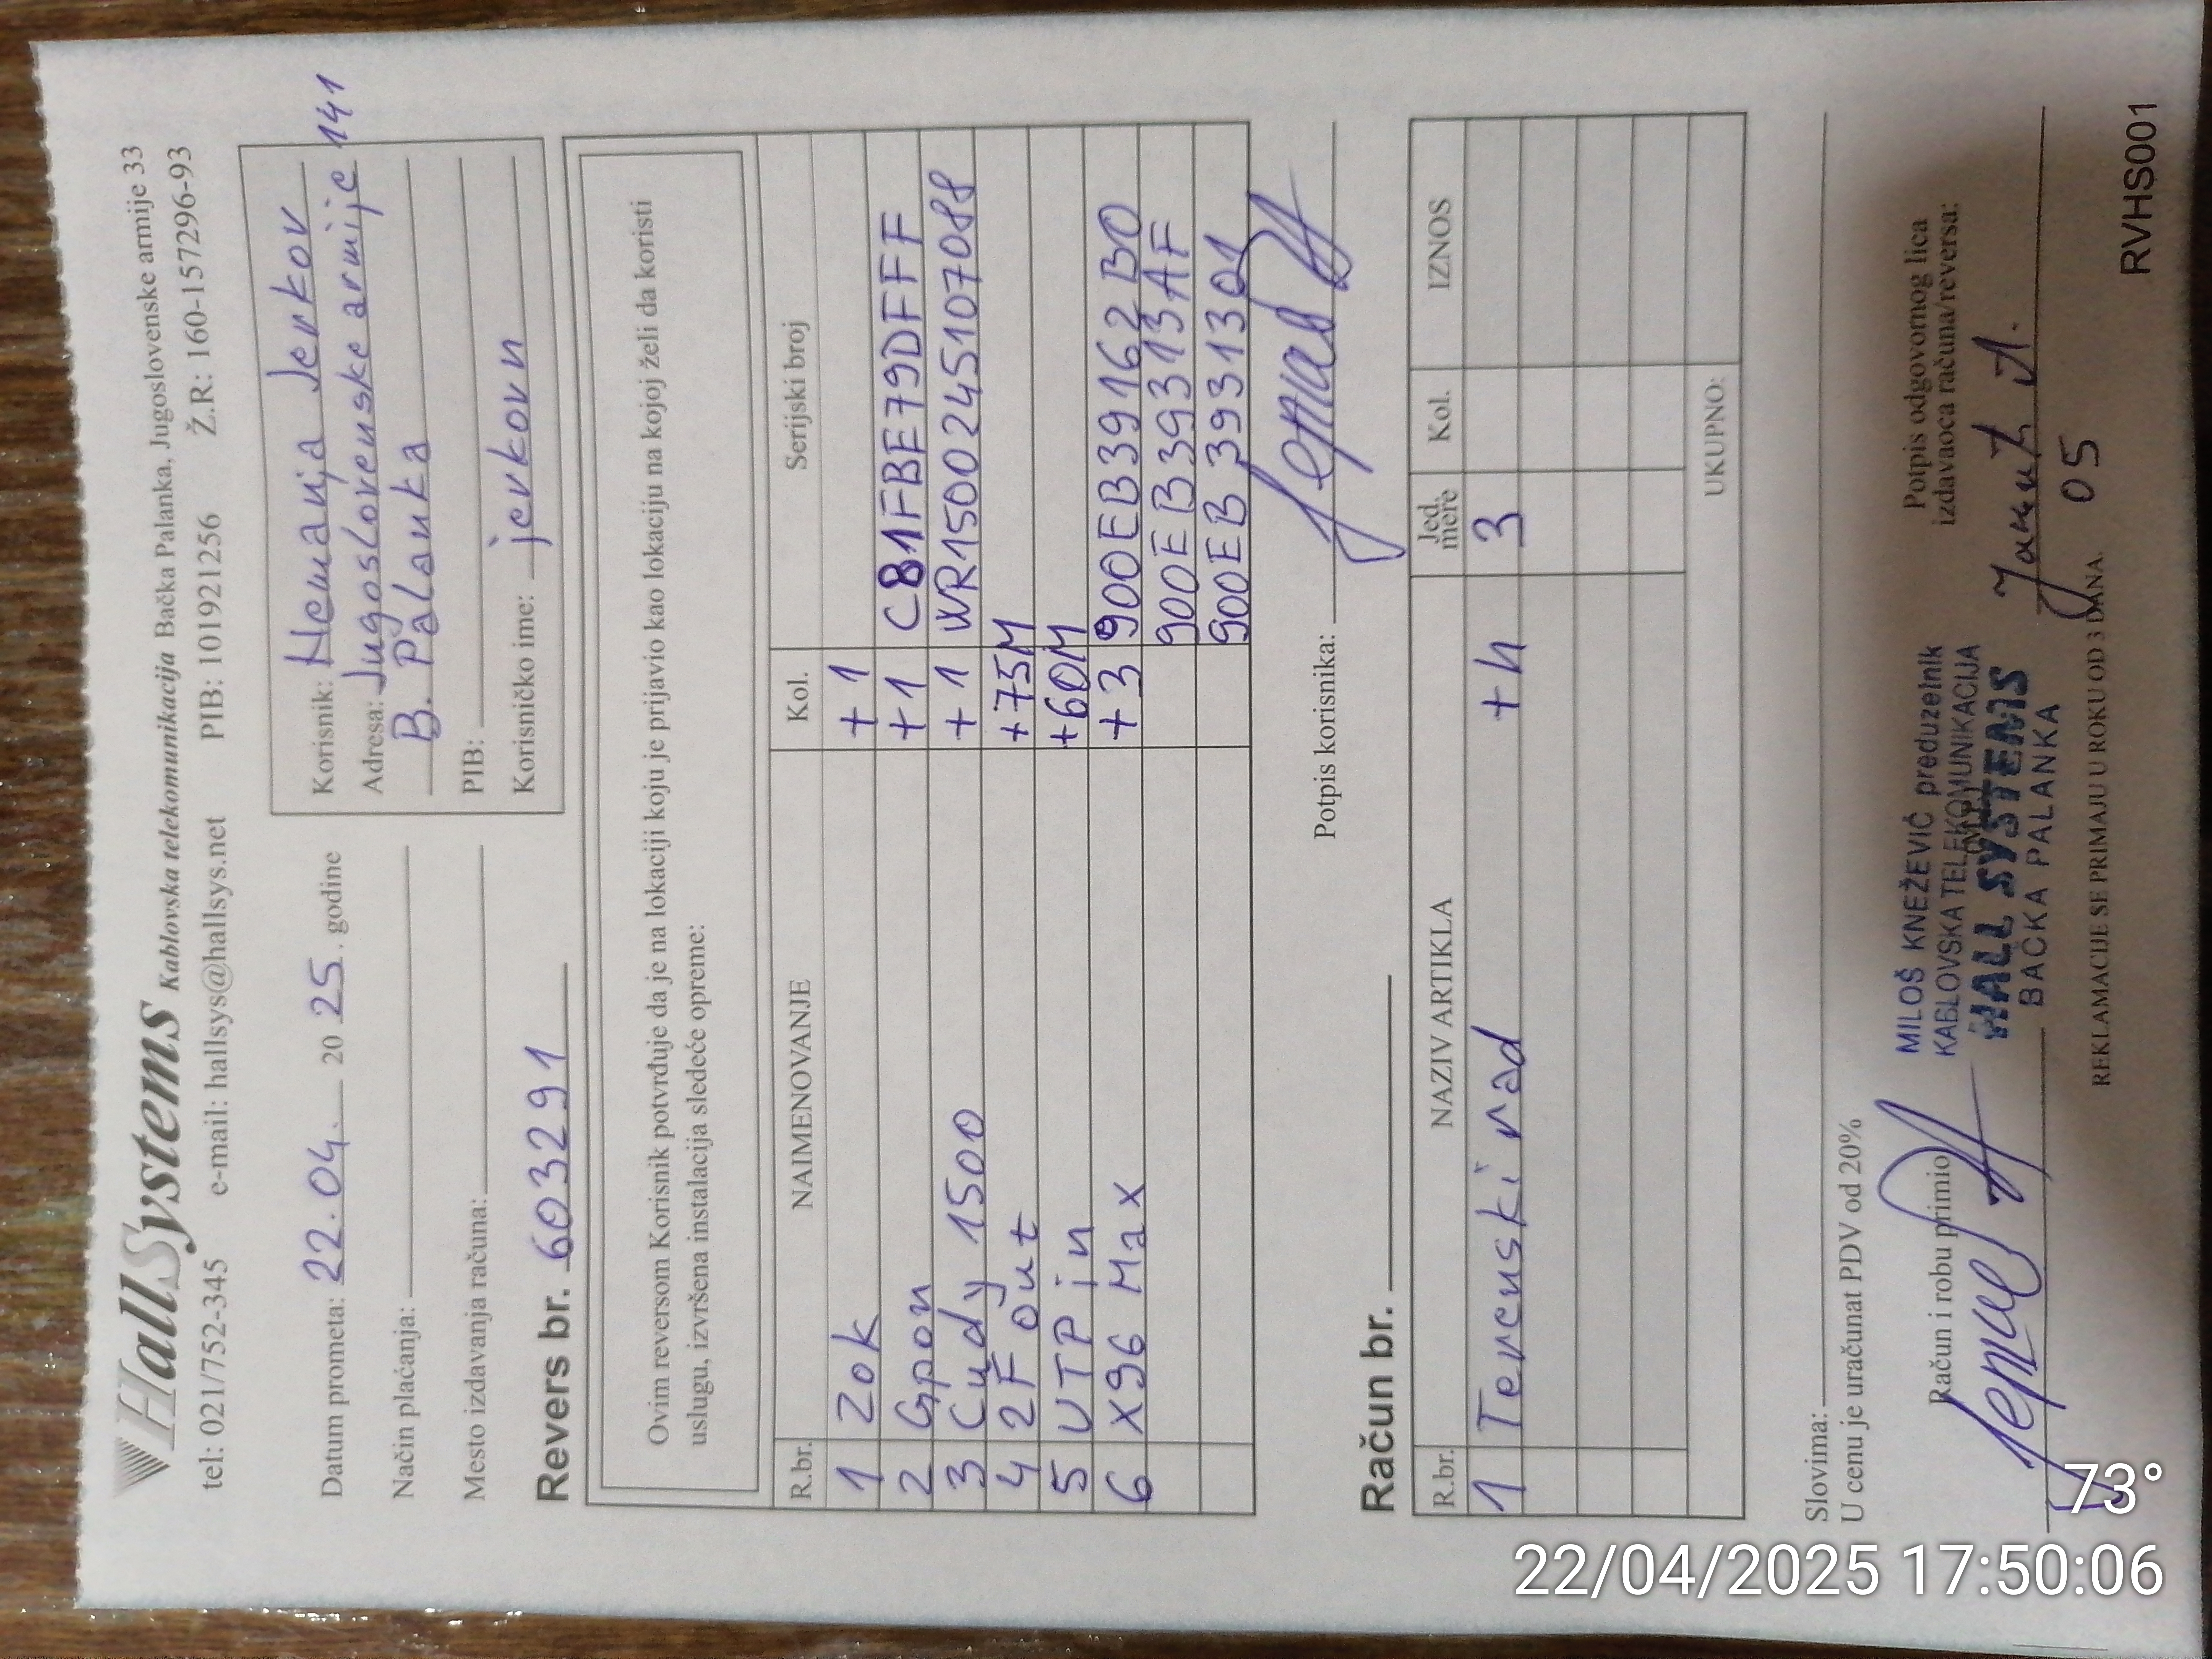 HallSystems Kablovska telekomunikacija Bačka Palanka, Jugoslovenske armije 33
tel: 021/752-345 e-mail: hallsys@hallsys.net PIB: 101921256 Ž.R: 160-157296-93
Datum prometa: 22.04. 20 25. godine
Način plaćanja:
Mesto izdavanja računa:
Korisnik: Nemanja Jerkov
Adresa: Jugoslovenske armije 141
B. Palanka
PIB:
Korisničko ime: jerkovn
Revers br. 603291
Ovim reversom Korisnik potvrđuje da je na lokaciji koju je prijavio kao lokaciju na kojoj želi da koristi
uslugu, izvršena instalacija sledeće opreme:
R.br. NAIMENOVANJE Kol. Serijski broj
1 ZOK +1
2 Gpon +1 C81FBE79DFFF
3 Cudy 1500 +1 WR1500245107088
4 2F out +75M
5 UTP in +60M
6 X96 Max +3 900EB39162B0
900EB39313AF
900EB3931301
Potpis korisnika:
Račun br.
R.br. NAZIV ARTIKLA Jed. mere Kol. IZNOS
1 Terenski rad +h 3
UKUPNO:
Slovima:
U cenu je uračunat PDV od 20%
Račun i robu primio
Potpis odgovornog lica
izdavaoca računa/reversa:
MILOŠ KNEŽEVIĆ preduzetnik
KABLOVSKA TELEKOMUNIKACIJA
HALL SYSTEMS
BAČKA PALANKA
05
REKLAMACIJE SE PRIMAJU U ROKU OD 3 DANA.
RVHS001
73°
22/04/2025 17:50:06